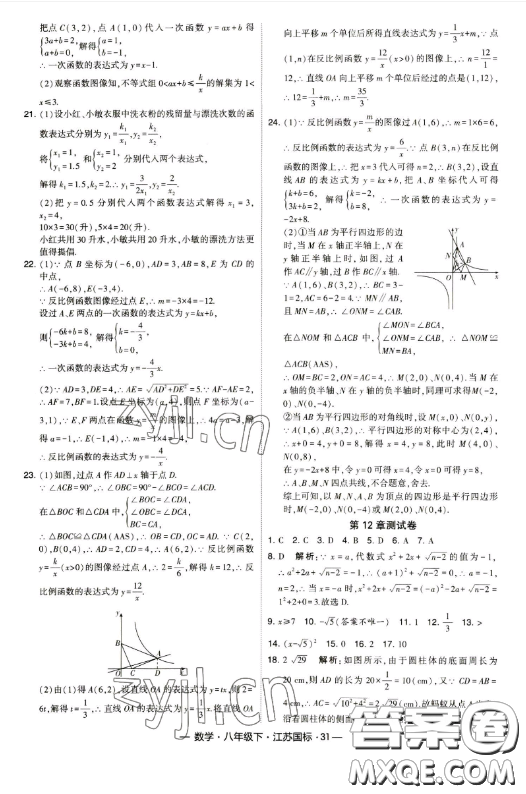 把点C(3,2),点A(1,0)代入一次函数y=ax+b得
{3a+b=2, a+b=0, 解得{a=1, b=-1,
∴一次函数的表达式为y=x-1.
(2)观察函数图像知,不等式组0<ax+b≤k/x的解集为1<
x≤3.
21. (1)设小红、小敏衣服中洗衣粉的残留量与漂洗次数的函
数表达式分别为y₁=k₁/x,y₂=k₂/x,
将{x₁=1, y₁=1.5 和{x₂=1, y₂=2 分别代入两个表达式,
解得k₁=1.5,k₂=2.∴y₁=3/2x₁,y₂=2/x₂.
(2)把y=0.5分别代入两个函数表达式解得x₁=3,
x₂=4,
10×3=30(升),5×4=20(升).
小红共用30升水,小敏共用20升水,小敏的漂洗方法更
值得提倡.
22. (1)∵点B坐标为(-6,0),AD=3,AB=8,E为CD的
中点,
∴A(-6,8),E(-3,4).
∵反比例函数图像经过点E,∴m=-3×4=-12.
设过A、E两点的一次函数的表达式为y=kx+b,
则{-6k+b=8, -3k+b=4, 解得{k=-4/3, b=0,
∴一次函数的表达式为y=-4/3x.
(2)∵AD=3,DE=4,∴AE=√AD²+DE²=5.∵AF-AE=2,
∴AF=7,BF=1.设点E坐标为(a,4),则点F坐标为(a-
3,1),∵E,F两点在函数y=m/x的图像上,∴4a=a-3,解
得a=-1,∴E(-1,4),∴m=-1×4=-4,
∴反比例函数的表达式为y=-4/x.
23. (1)如图,过点A作AD⊥x轴于点D.
∵∠ACB=90°,∴∠OBC=90°-∠BCO=∠ACD.
在△BOC和△CDA中,{∠BOC=∠CDA, ∠OBC=∠DCA, BC=CA,
∴△BOC≌△CDA(AAS),∴OB=CD,OC=AD.∵C(2,
0),B(0,4),∴AD=2,CD=4,∴A(6,2).∵反比例函数
y=k/x(x>0)的图像经过点A,∴2=k/6,解得k=12,∴反
比例函数的表达式为y=12/x.
y
B
A
O C D x
(2)由(1)得A(6,2),设直线OA的表达式为y=tx,则2=
6t,解得t=1/3,∴直线OA的表达式为y=1/3x.将直线OA
向上平移m个单位后所得直线表达式为y=1/3x+m,∵点
(1,n)在反比例函数y=12/x(x>0)的图像上,∴n=12/1
=12,∴直线OA向上平移m个单位后经过的点是(1,12),
∴12=1/3+m,∴m=35/3.
24. (1)∵反比例函数y=m/x的图像过A(1,6),∴m=1×6=6,
∴反比例函数的表达式为y=6/x.∵点B(3,n)在反比例
函数的图像上,∴把x=3代入可得n=2,∴B(3,2),设直
线AB的表达式为y=kx+b,把A、B坐标代入可得
{k+b=6, 3k+b=2, 解得{k=-2, b=8, ∴一次函数的表达式为y=
-2x+8.
(2)①当AB为平行四边形的边
时,当M在x轴正半轴上,N在
y轴正半轴上时,如图,过A
作AC∥y轴,过B作BC∥x轴.
∵A(1,6),B(3,2),∴BC=3-
1=2,AC=6-2=4.∵MN∥AB,
且MN=AB,∴∠ONM=∠CAB.
在△NOM和△ACB中,{∠MON=∠BCA, ∠ONM=∠CAB, MN=BA, ∴△NOM≌
△ACB(AAS),
∴OM=BC=2,ON=AC=4,∴M(2,0)、N(0,4).当M在
x轴的负半轴、N在y轴的负半轴时,同理可求得M(-2,
0)、N(0,-4).
②当AB为平行四边形的对角线时,设M(x,0)、N(0,y),
∵A(1,6),B(3,2),∴平行四边形的对称中心为(2,4),
∴x+0=4,y+0=8,解得x=4,y=8,此时M(4,0)、
N(0,8),
在y=-2x+8中,令y=0可得x=4,令x=0可得y=8,
∴A、B、M、N四点共线,不合题意,舍去.
综上可知,以M、N、A、B为顶点的四边形是平行四边形
时,M(-2,0)、N(0,-4)或M(2,0)、N(0,4).
第12章测试卷
1. C 2. C 3. D 4. D 5. D 6. A 7. A
8. D 解析:∵x=a,代数式x²+2x+√n-2的值为-1,
∴a²+2a+√n-2=-1,∴(a+1)²+√n-2=0,∴a=-1,
n=2,∴当x=-a时,x²+2x+√n-2=(-a)²-2a+√n-2=
1²+2+0=3.故选D.
9. x≥7 10. -√5(答案不唯一) 11. 1 12. 1/3 13. >
14. (x-√5)² 15. 0 16. 2 17. 10
18. 2√29 解析:如图所示,由于圆柱体的底面周长为
20 cm,则AD的长为20×1/2=10(cm).又∵CD=AB=
4 cm,∴AC=√10²+4²=2√29(cm).故蚂蚁从点A出发
沿着圆柱体的侧面
— 数学·八年级下·江苏国标·31 —
zyjl.cn
zyjl.cn
答案圈
MXQE.COM